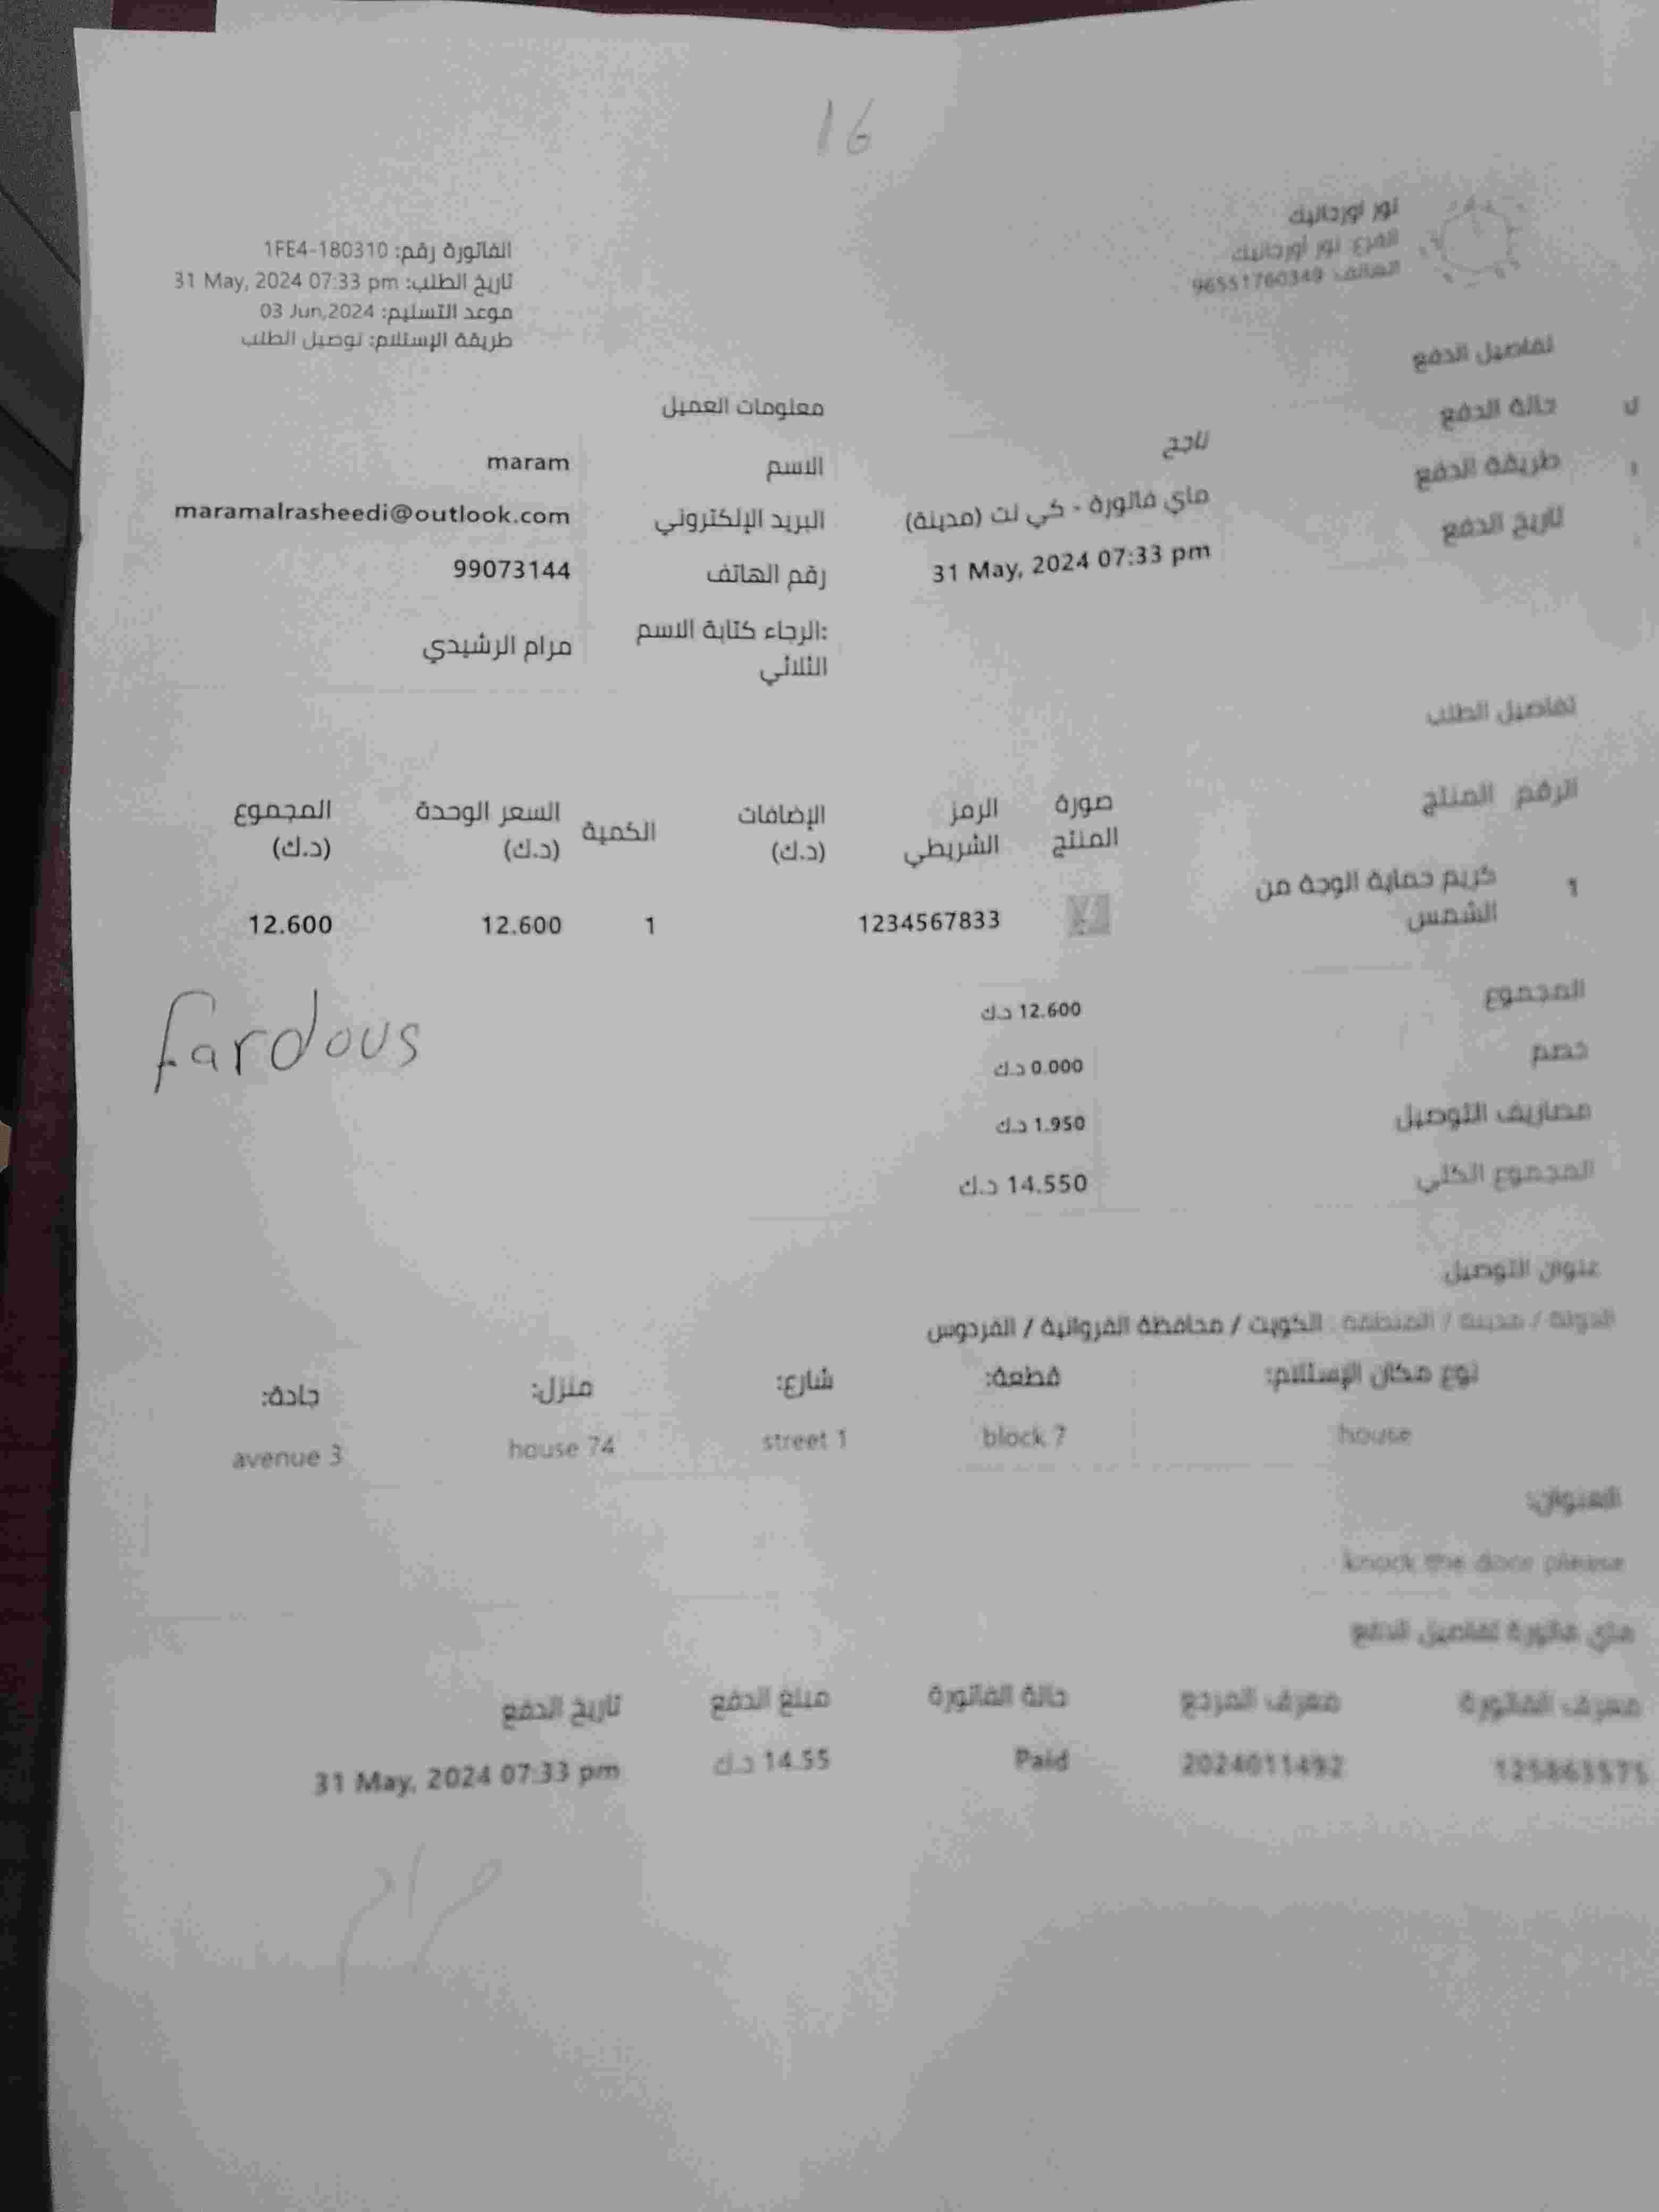 16
نور اورجانيك
الفرع: نور اورجانيك
الهاتف: 96551760349
الفاتورة رقم: 1FE4-180310
تاريخ الطلب: 31 May, 2024 07:33 pm
موعد التسليم: 03 Jun,2024
طريقة الإستلام: توصيل الطلب
تفاصيل الدفع
حالة الدفع ناجح
طريقة الدفع ماي فاتورة - كي نت (مدينة)
تاريخ الدفع 31 May, 2024 07:33 pm
معلومات العميل
الاسم maram
البريد الإلكتروني maramalrasheedi@outlook.com
رقم الهاتف 99073144
:الرجاء كتابة الاسم الثلاثي مرام الرشيدي
تفاصيل الطلب
الرقم المنتج صورة المنتج الرمز الشريطي الإضافات (د.ك) الكمية السعر الوحدة (د.ك) المجموع (د.ك)
1 كريم حماية الوجة من الشمس 1234567833 1 12.600 12.600
المجموع 12.600 د.ك
خصم 0.000 د.ك
مصاريف التوصيل 1.950 د.ك
المجموع الكلي 14.550 د.ك
fardous
عنوان التوصيل
الدولة / مدينة / المنطقة الكويت / محافظة الفروانية / الفردوس
نوع مكان الإستلام: قطعة: شارع: منزل: جادة:
house block 7 street 1 house 74 avenue 3
العنوان:
knock the door please
ماي فاتورة تفاصيل الدفع
معرف الفاتورة معرف المرجع حالة الفاتورة مبلغ الدفع تاريخ الدفع
2024011492 Paid 14.55 د.ك 31 May, 2024 07:33 pm